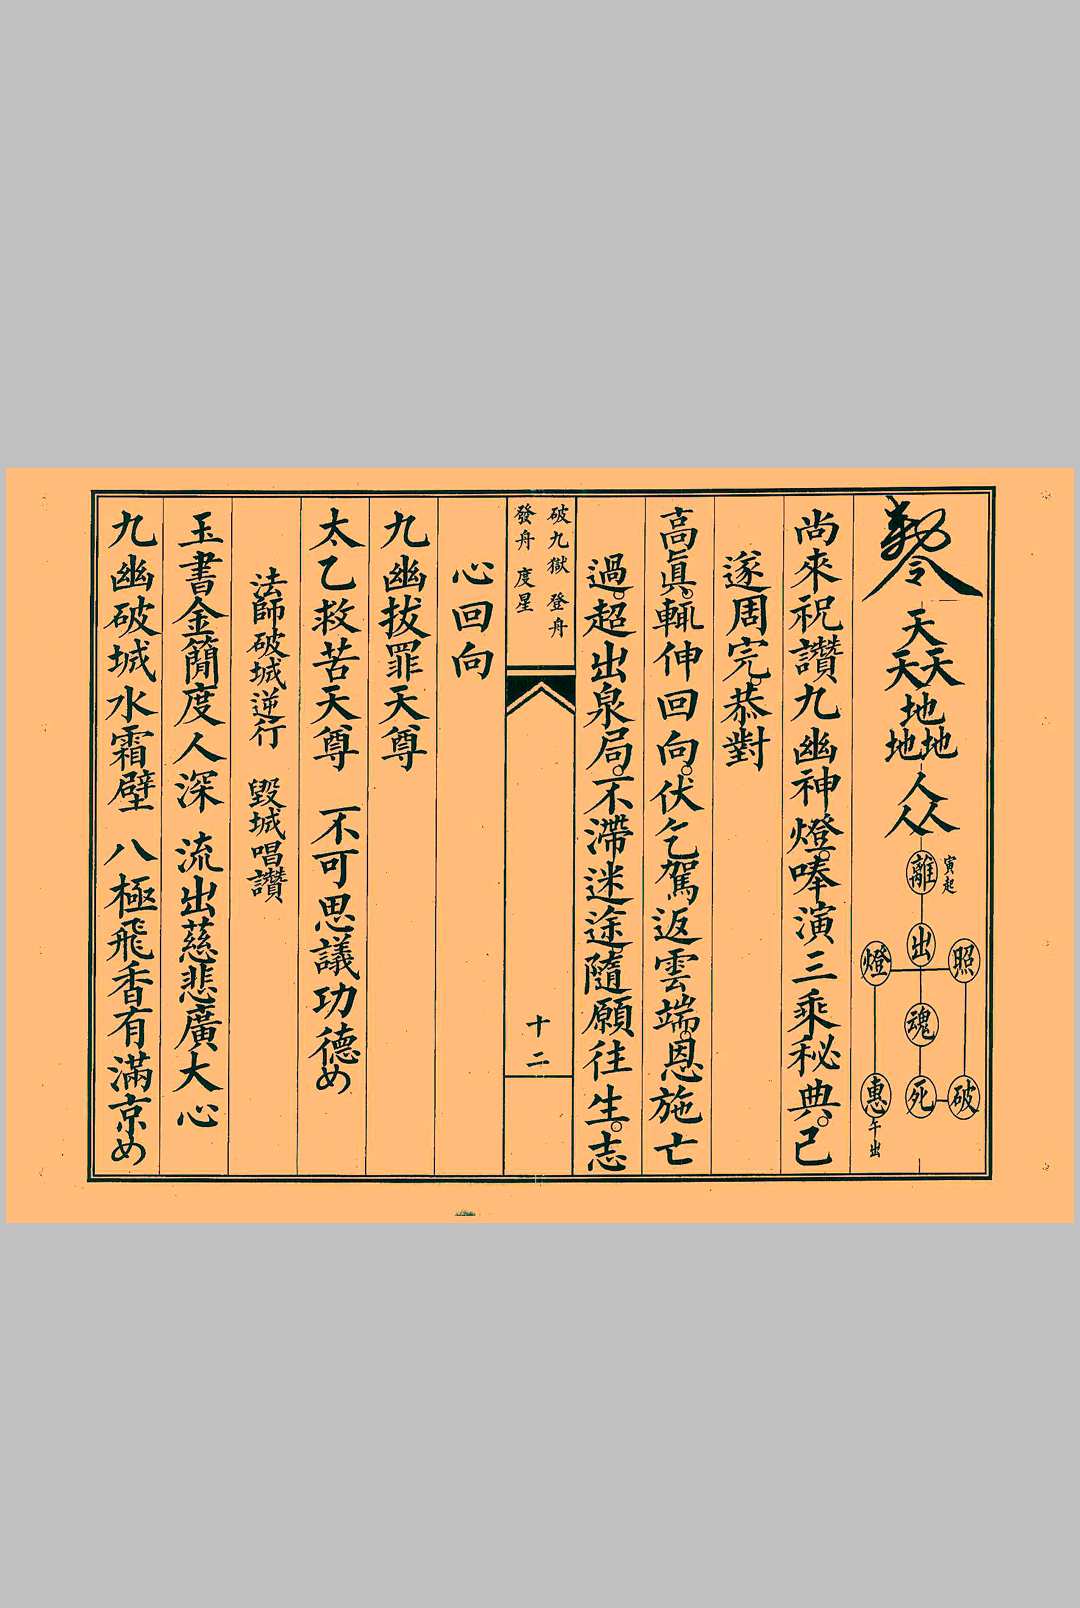 敕令
天
天天
地
地地
人
人人
寅起
離
燈 出 照
魂
惠 死 破
午出
尚來祝讚九幽神燈。唪演三乘秘典。已
遂周完。恭對
高眞。輒伸回向。伏乞駕返雲端。恩施亡
過。超出泉局。不滯迷途。隨願往生。志
破九獄 登舟
發舟 度星
十二
心回向
九幽拔罪天尊
太乙救苦天尊 不可思議功德
法師破城逆行 毀城唱讚
玉書金簡度人深 流出慈悲廣大心
九幽破城水霜壁 八極飛香有滿京